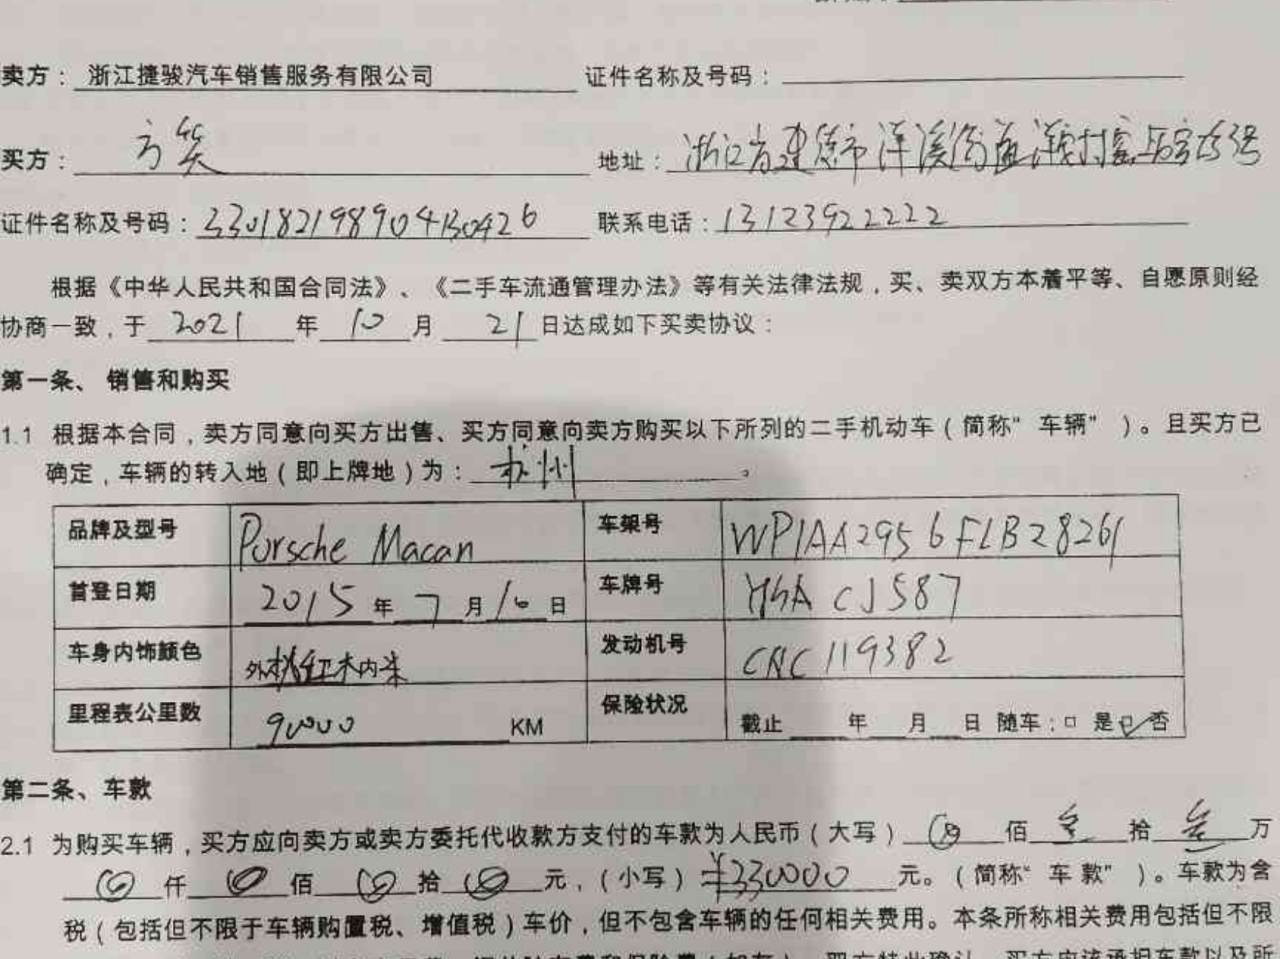 卖方： 浙江捷骏汽车销售服务有限公司 证件名称及号码：
买方： 方笑 地址： 浙江省建德市洋溪街道洋安村富
证件名称及号码： 330182198904130426 联系电话： 13123922222
根据《中华人民共和国合同法》、《二手车流通管理办法》等有关法律法规，买、卖双方本着平等、自愿原则经
协商一致，于 2021 年 10 月 21 日达成如下买卖协议：
第一条、 销售和购买
1.1 根据本合同，卖方同意向买方出售、买方同意向卖方购买以下所列的二手机动车（简称“车辆”）。且买方已
确定，车辆的转入地（即上牌地）为： 杭州 。
品牌及型号 Porsche Macan 车架号 WP1AA2956FLB28261
首登日期 2015 年 7 月 16 日 车牌号 CJ587
车身内饰颜色 外 红木内米 发动机号 CNC119382
里程表公里数 90000 KM 保险状况 截止 年 月 日 随车：□ 是 ☑ 否
第二条、车款
2.1 为购买车辆，买方应向卖方或卖方委托代收款方支付的车款为人民币（大写） 佰 叁 拾 叁 万
仟 佰 拾 元，（小写） ¥330000 元。（简称“车款”）。车款为含
税（包括但不限于车辆购置税、增值税）车价，但不包含车辆的任何相关费用。本条所称相关费用包括但不限